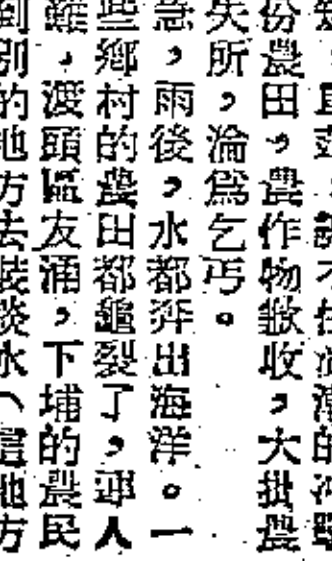 份農田，農作物歉收，大批農
失所，淪爲乞丐。
急，雨後，水都奔出海洋。一
些鄉村的農田都龜裂了，連人
難，渡頭區友涌，下埔的農民
到別的地方去裝淡水（這地方